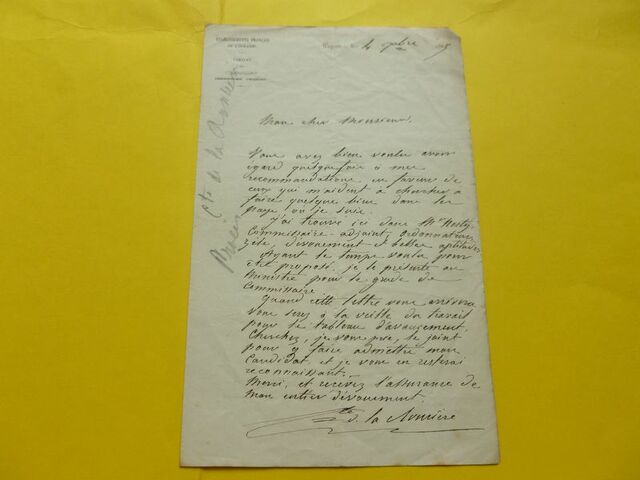 ÉTABLISSEMENTS FRANÇAIS
DE L'OCÉANIE
CABINET
4 9bre
Mon cher Monsieur,
Vous avez bien voulu avoir
égard quelquefois à mes
recommandations en faveur de
ceux qui m'aident à chercher à
faire quelque bien dans les
pays où je suis.
J'ai trouvé ici dans Mr
Commissaire-adjoint, ordonnateur,
zèle, dévouement et belles aptitudes.
Ayant le temps voulu pour
être proposé, je le présente au
Ministre pour le grade de
Commissaire.
Quand cette lettre vous arrivera
vous serez à la veille du travail
pour le tableau d'avancement.
Cherchez, je vous prie, le joint
pour y faire admettre mon
candidat et je vous en resterai
reconnaissant.
Merci, et recevez l'assurance de
mon entier dévouement.
de la Roncière
Cte de la Roncière